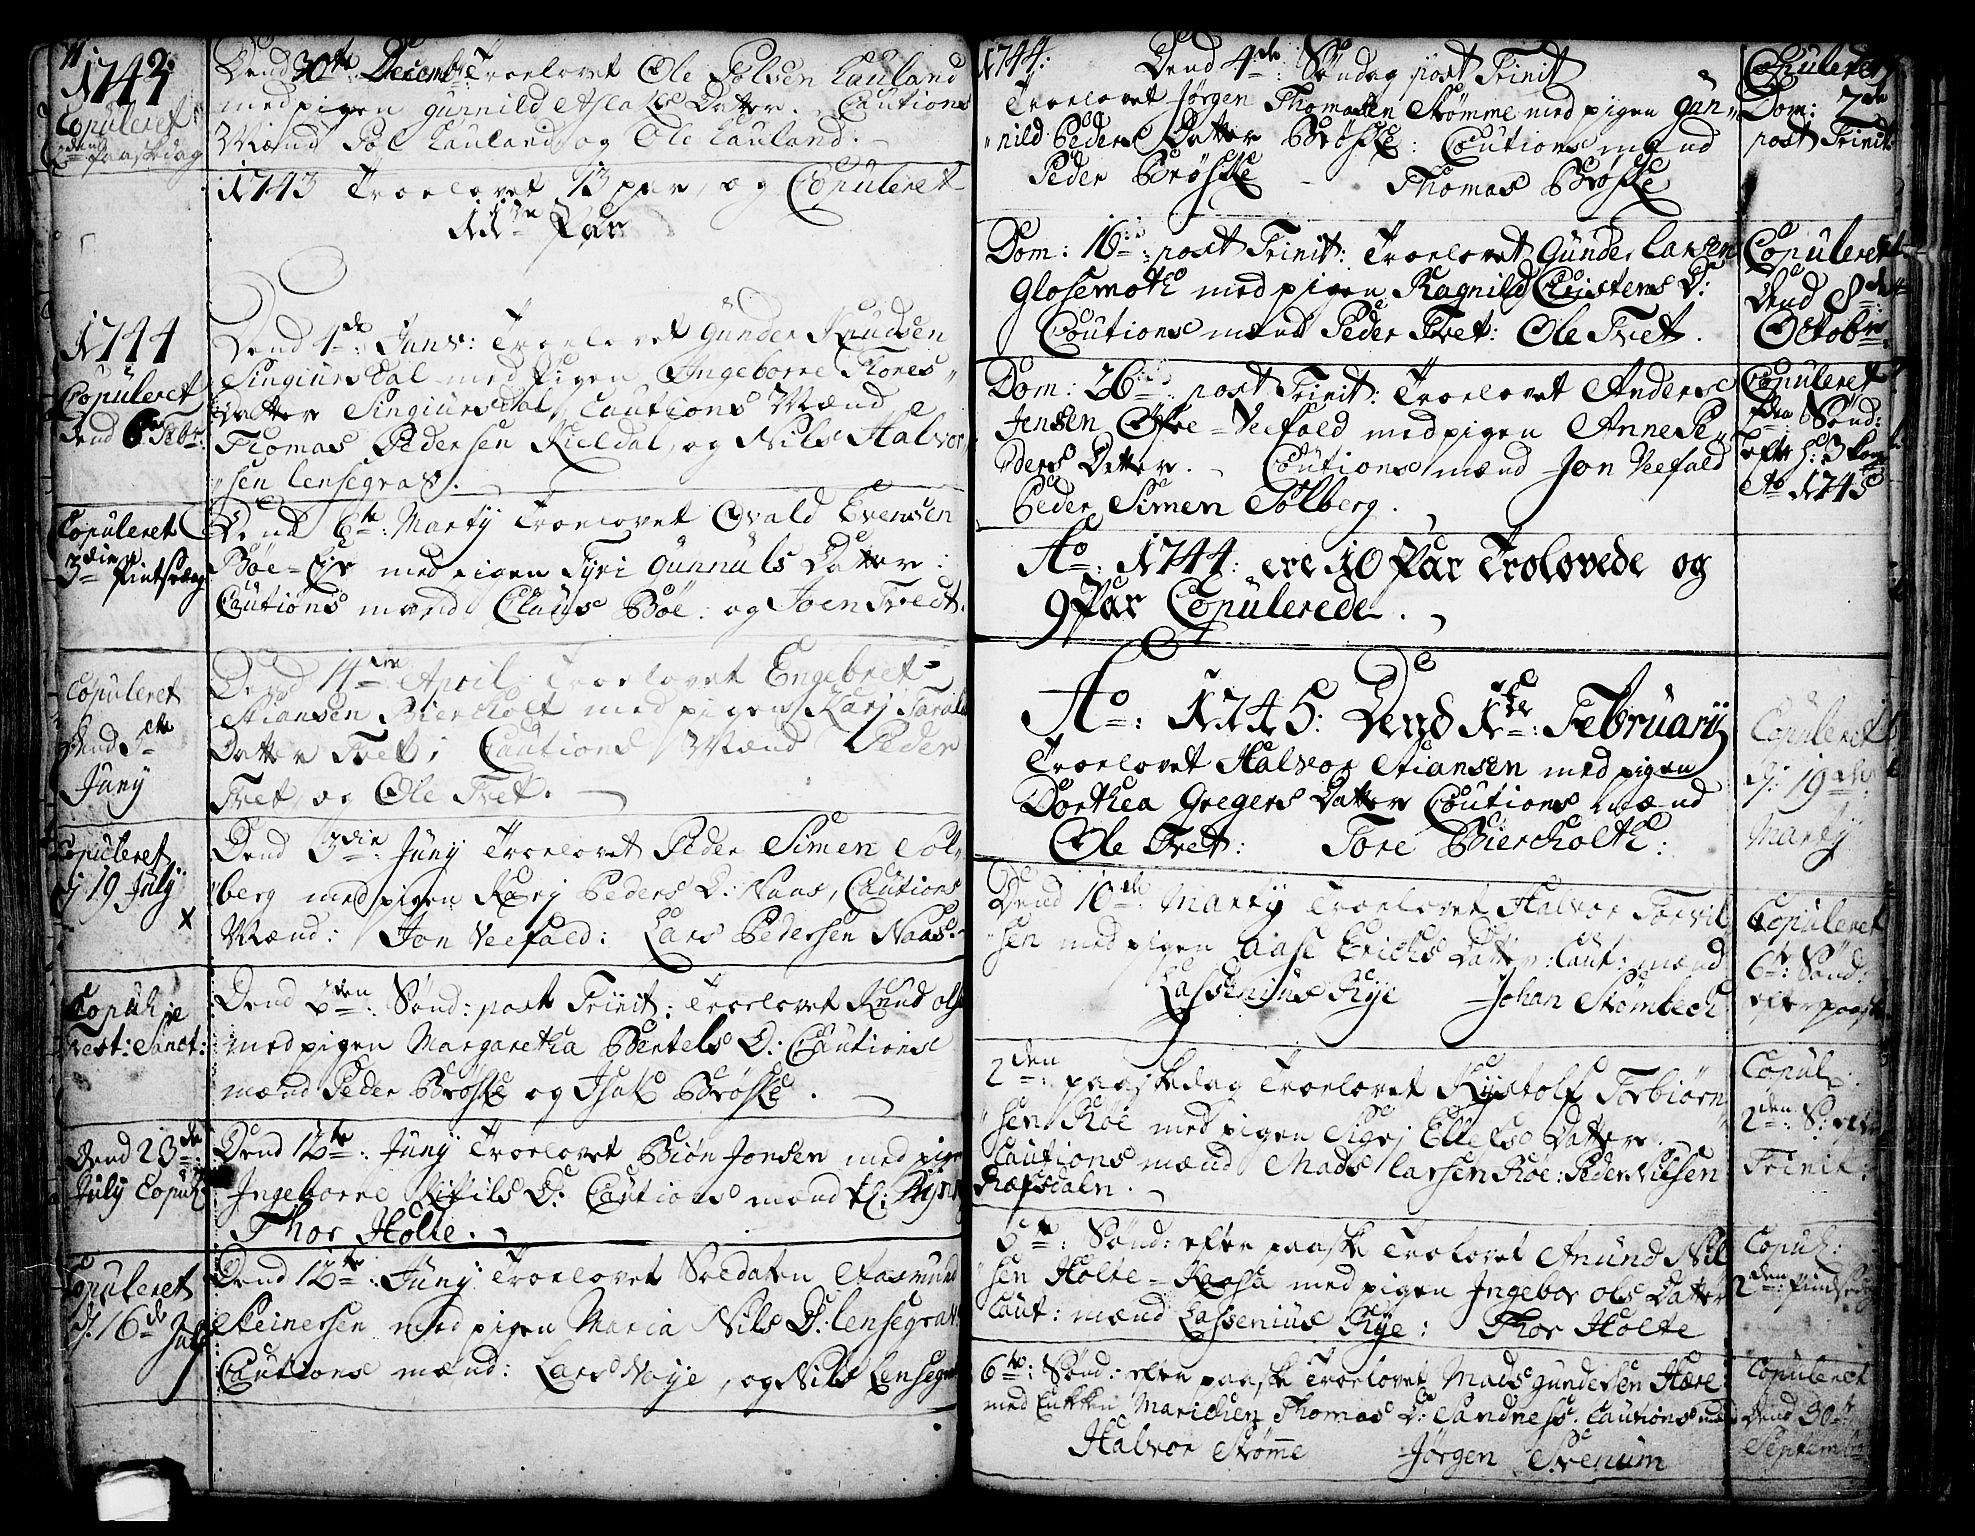 1743
Copuleret
Paaskedag
Dend 30te Decembr: Troelovet Ole Polsen Lauland
med pigen Gunnild Aslaks Datter. Cautions
Mænd Pol Lauland og Ole Lauland.
1743 Troelovet 13 par, og Copuleret
11 Par
1744
Copuleret
dend 6 Febr:
Dend 1de Janv: Troelovet Gunder Knudsen
Singiursdal med Pigen Ingeborre Tores
Datter Singiursdal, Cautions Mænd
Thomas Pedersen Kieldal, og Nils Halvor
sen Lensegrav.
Copuleret
3die Pintsedag
Dend 6te Martij Troelovet Ovald Evensen
Böe-Eje med pigen Tyri Gunnuls Datter:
Cautions mænd Claus Böe: og Joen Tvedt.
Copuleret
Dend 5te
Junij
Dend 14de April Troelovet Engebret
Stiansen Biercholt med pigen Karj Tarals
Datter Tvet; Cautions Mænd Peder
Tvet, og Ole Tvet.
Copuleret
dj 19 Julij
x
Dend 3die Junij Troelovet Peder Simen Sol
berg med pigen Karj Peders D: Naas, Cautions
Mænd: Jon Veefald: Lars Pedersen Naas.
Copul:
Fest: Sanct:
Dend Sönd: post Trinit: Troelovet Knud Ols
med pigen Margaretha Bertels D: Cautions
mænd Peder Bröske og Isak Bröske.
Dend 23de
Julij Copul:
Dend 12te Junij Troelovet Biön Jonsen med pigen
Ingeborre Kitils D: Cautions mænd
Thor Holte.
Copuleret
dj. 16de Julj
Dend 12te Junij Troelovet Soldaten Aasmund
Steinersen med pigen Maria Nils D: Lensegrav.
Cautions mænd: Lars Naje, og Nils Lensegrav
1744. Dend 4de Söndag post Trinit
Troelovet Jörgen Thomasen Strömme med pigen Gun
nild Peders Datter Bröske: Cautions mænd
Peder Bröske - Thomas Bröske
Copuleret
Dom: 7de
post Trinit:
Dom: 16de post Trinit: Troelovet Gunder Larsen
Glosemoth med pigen Ragnild Christens D:
Cautions mænd Peder Tvet: Ole Tvet.
Copuleret
Dend 8de
Octobr.
Dom: 26de post Trinit: Troelovet Anders
Jensen Öfre-Veefald med pigen Anne Pe
ders Datter. - Cautions mænd Jon Veefald
Peder Simen Solberg.
Copuleret
Sönd:
eft h: 3 Kong
Ao 1745
Ao: 1744: ere 10 Par Trolovede og
9 Par Copulerede.
Ao: 1745: Dend 1ste Februarij
Troelovet Halvor Stiansen med pigen
Dorthea Gregers Datter Cautions mænd
Ole Tvet: Tore Biercholth:
Copuleret
dj: 19de
Martij
Dend 10de Martij Troelovet Halvor Torvil
sen med pigen Aase Erichs Datter: Caut: mænd
Lassenius Rye Johan Strömbech
Copuleret
6te Sönd:
efter paaske
2den paaskedag Troelovet Kystolf Torbiörn
sen Röe med pigen Sigrj Ellefs Datter.
Cautions mænd Mads Larsen Röe: Peder Nielsen
Copul:
2den S: efter
Trinit:
5te Sönd: efter paaske Troelovet Anund Nil
sen Holte-Raasa med pigen Ingebor Ols Datter
Caut: mænd Lassenius Rye: Thor Holte
Copul:
2den Pindsedag
6te: Sönd: efter paaske Troelovet Mads Gundersen Hære
med Enkken Marichen Thomas D: Sandness: Cautions mænd
Halvor Strömme Jörgen Svenum
Copuleret
Dend 30te
Septembr: